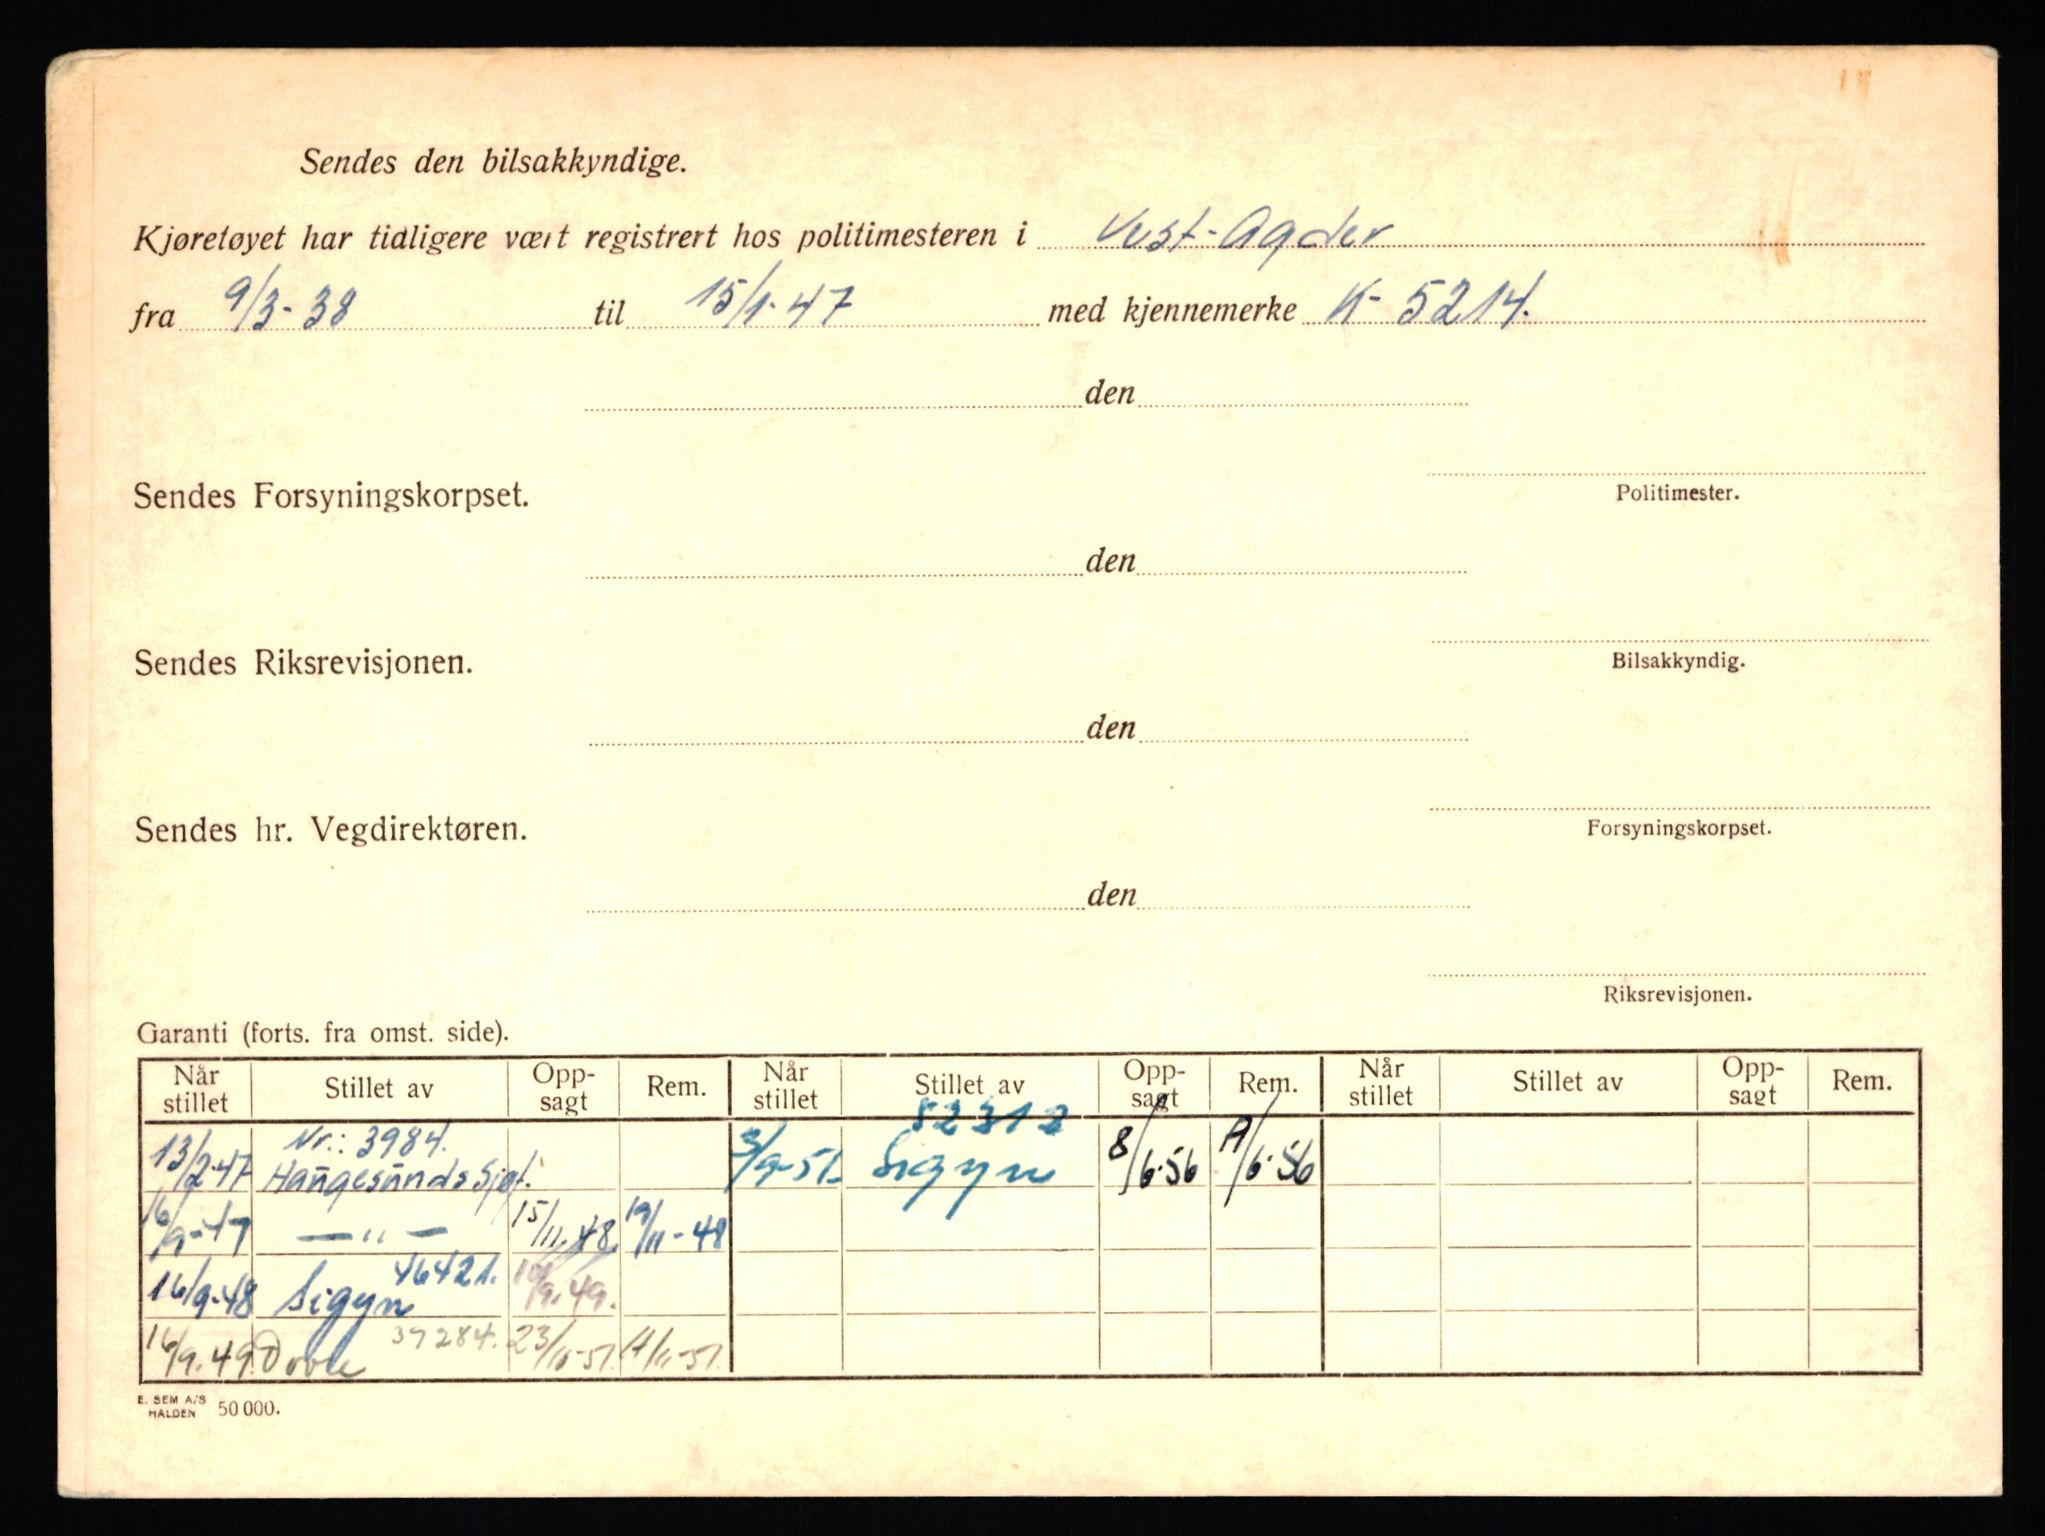 Sendes den bilsakkyndige.
Kjøretøyet har tidligere vært registrert hos politimesteren i Vest-Agder
fra 9/3-38 til 15/1-47 med kjennemerke K-5214.
den
Politimester.
Sendes Forsyningskorpset.
den
Bilsakkyndig.
Sendes Riksrevisjonen.
den
Forsyningskorpset.
Sendes hr. Vegdirektøren.
den
Riksrevisjonen.
Garanti (forts. fra omst. side).
Når stillet Stillet av Opp-sagt Rem. Når stillet Stillet av Opp-sagt Rem. Når stillet Stillet av Opp-sagt Rem.
Nr.: 3984. 52312
13/2-47 Haugesunds Sjøf. 3/9-51. Sigyn 8/6-56 /6-56
16/9-47 — " — 15/11.48. 19/11-48
46421.
16/9-48 Sigyn /9.49.
37284.
16/9.49. Dovre 23/10-51. /11-51.
E. SEM A/S
HALDEN 50 000.